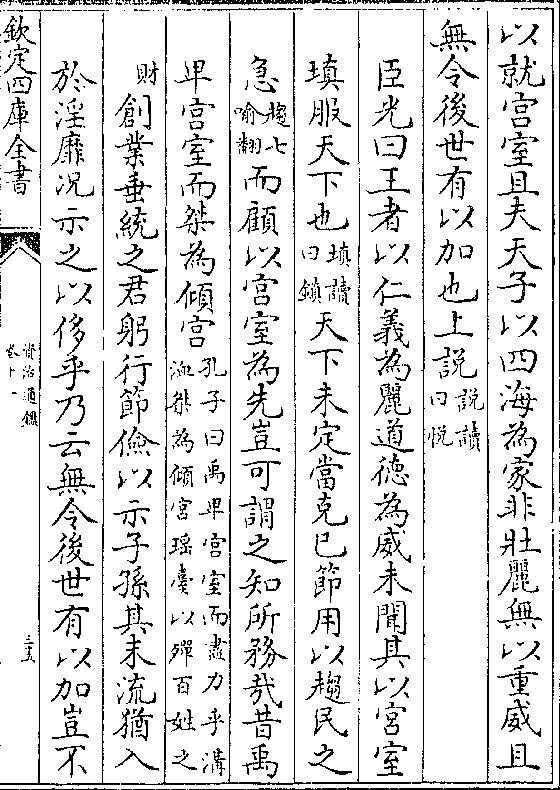 以就宫室且夫天子以四海為家非壯麗無以重威且
無令後世有以加也上説説讀曰悦
臣光曰王者以仁義為麗道徳為威未聞其以宫室
填服天下也填讀曰鎮天下未定當克已節用以趨民之
急趨七喻翻而顧以宫室為先豈可謂之知所務哉昔禹
卑宫室而桀為傾宫孔子曰禹卑宫室而盡力乎溝洫桀為傾宫瑶臺以殫百姓之
財創業垂統之君躬行節儉以示子孫其末流猶入
於淫靡况示之以侈乎乃云無令後世有以加豈不
欽定四庫全書
資治通鑑
卷十一
三五